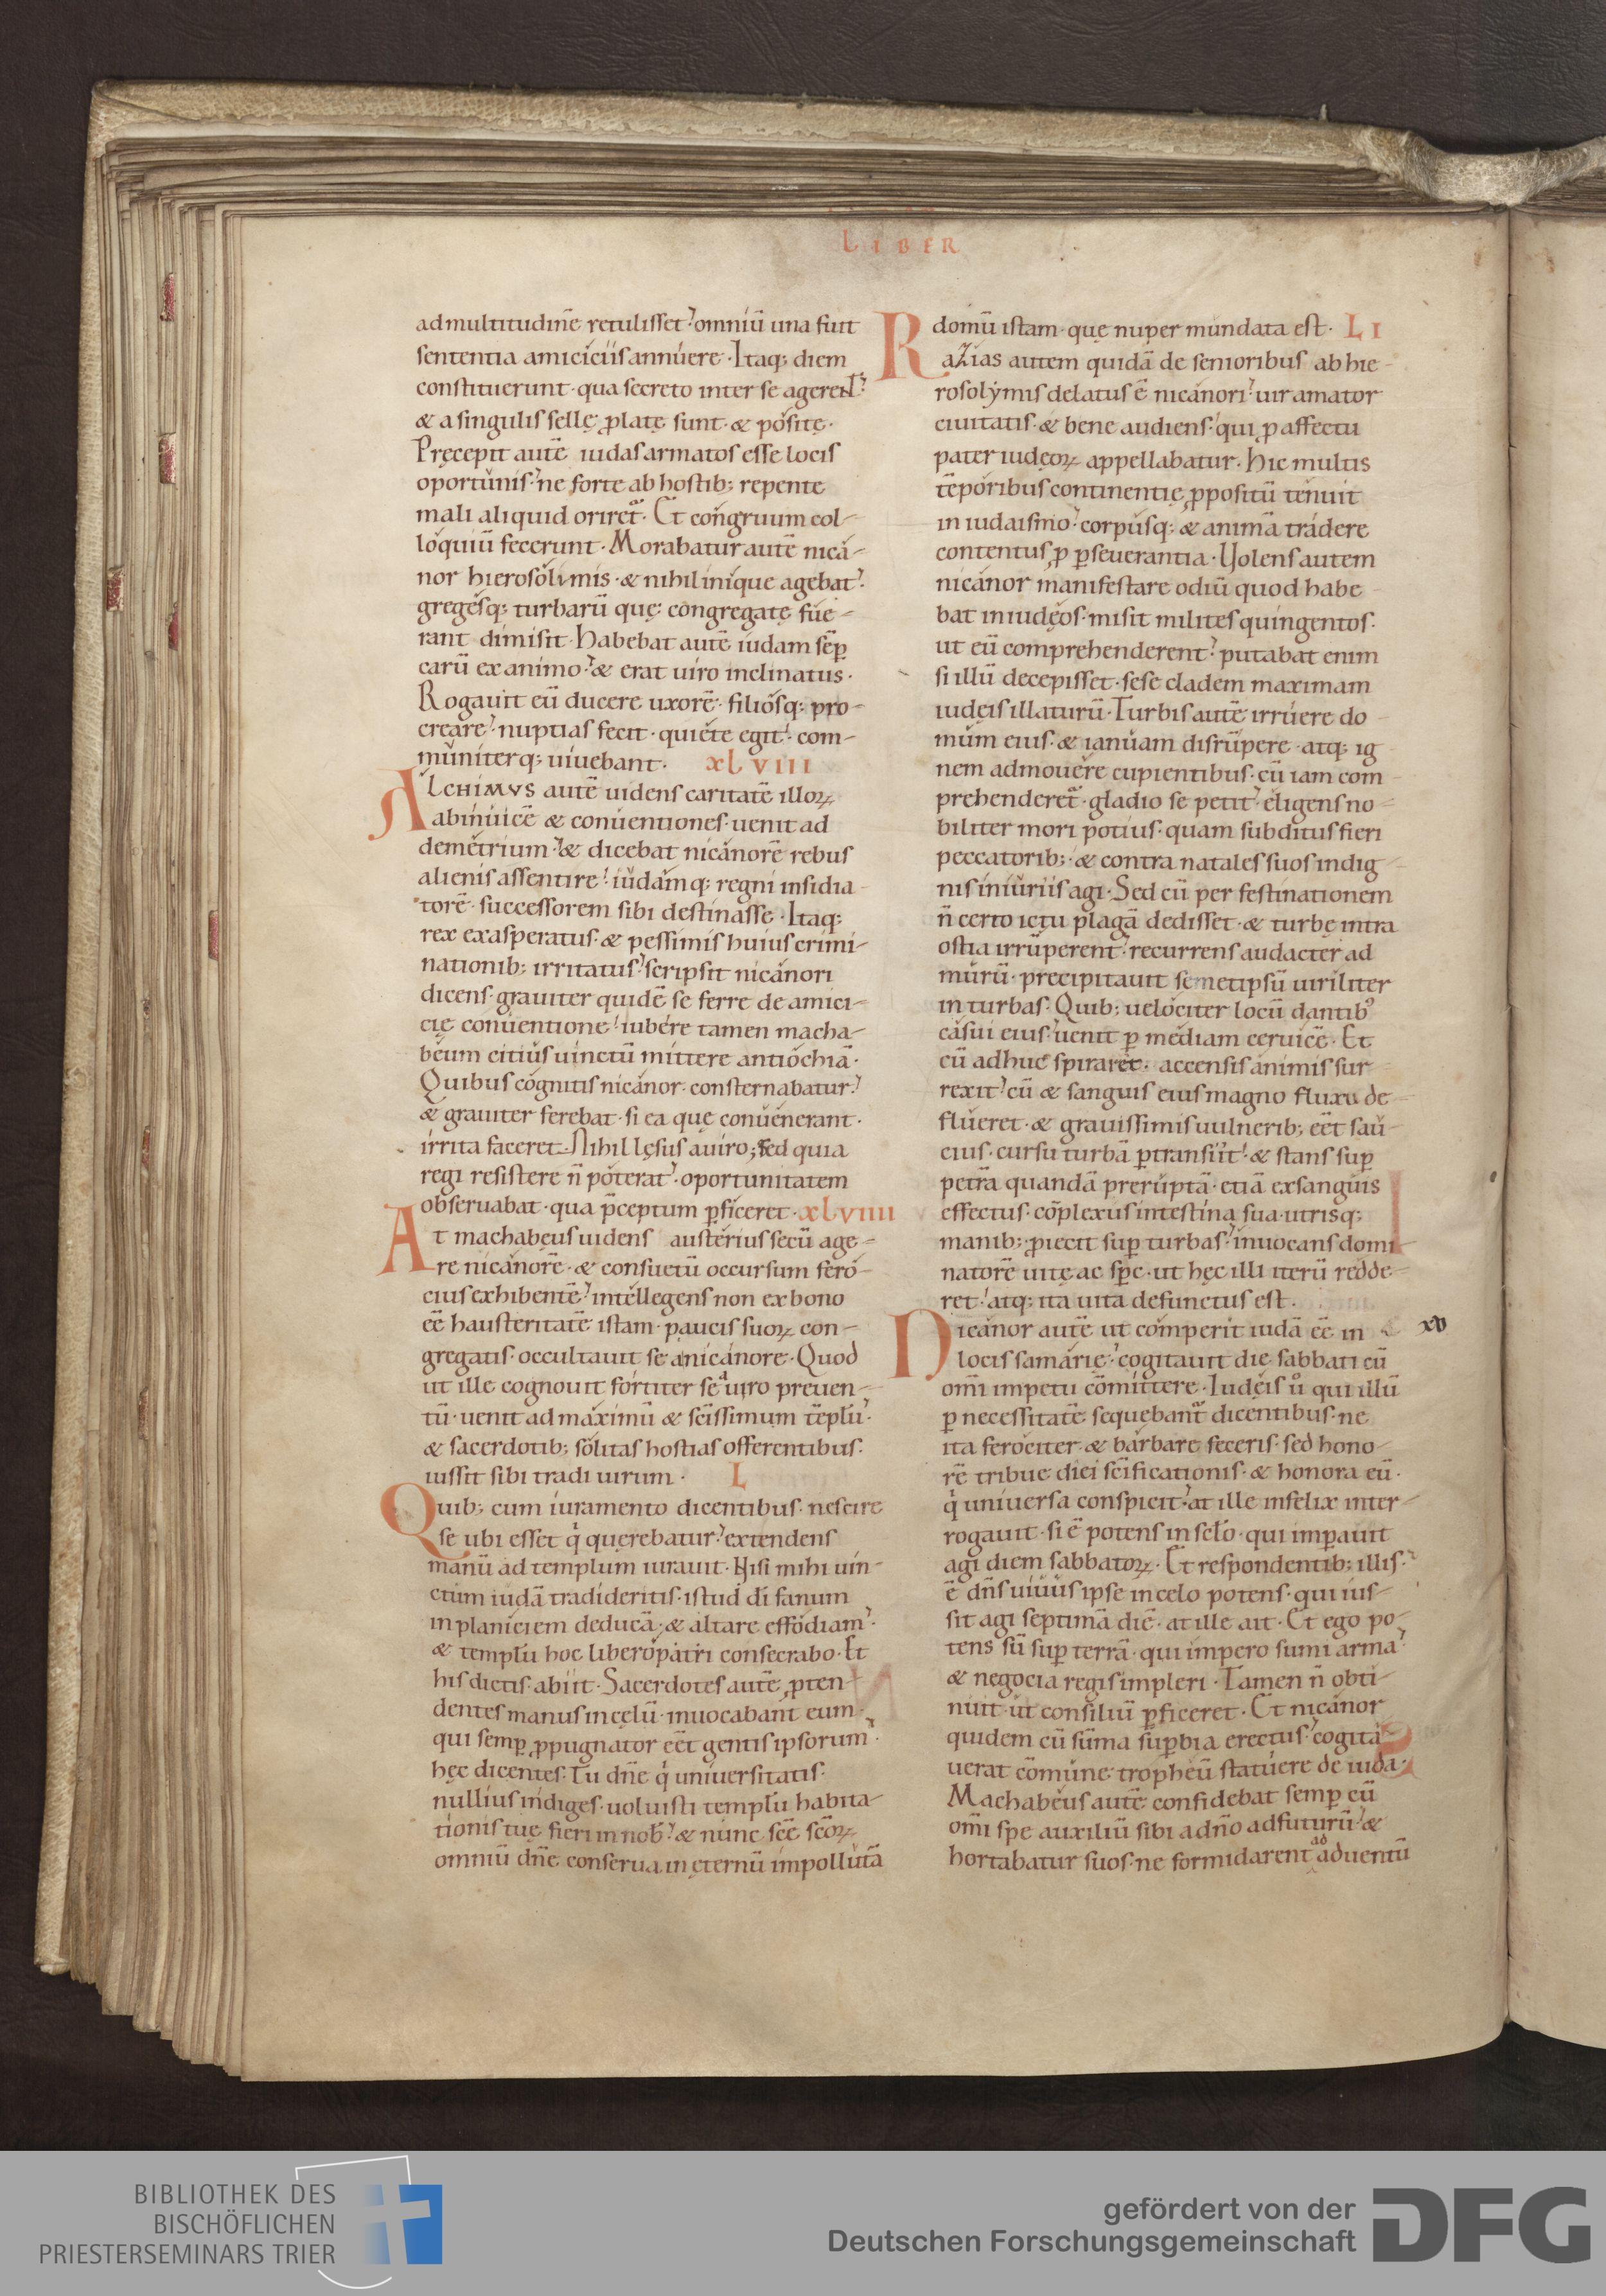 LIBER
ad multitudinē retulisset· omniū una fuit
sententia amiciciis annuere· Itaq; diem
constituerunt· qua secreto inter se agerent·
& a singulis sellę ꝓlatę sunt· & positę·
Pręcepit autē iudas armatos esse locis
oportunis· ne forte ab hostib; repente
mali aliquid oriret᷑· Et congruum col-
loquiū fecerunt· Morabatur autē nica-
nor hierosolimis· & nihil inique agebat·
gregesq; turbarū quę congregatę fue-
rant dimisit· Habebat autē iudam semꝑ
carū ex animo· & erat uiro inclinatus·
Rogauit eū ducere uxorē· filiosq; pro-
creare· nuptias fecit· quiete egit· com-
muniterq; uiuebant· xlviii
ALCHIMVS autē uidens caritatē illoꝝ
abinuicē & conuentiones· uenit ad
demetrium· & dicebat nicanorē rebus
alienis assentire· iudamq; regni insidia-
torē· successorem sibi destinasse· Itaq;
rex exasperatus· & pessimis huius crimi-
nationib; irritatus· scripsit nicanori
dicens· grauiter quidē se ferre de amici-
cię conuentione· iubere tamen macha-
beum citius uinctū mittere antiochiā·
Quibus cognitis nicanor· consternabatur·
& grauiter ferebat· si ea quę conuenerant·
irrita faceret· Nihil lęsus a uiro; sed quia
regi resistere n̄ poterat· oportunitatem
obseruabat· qua p̄ceptum ꝑficeret· xlviiii
At machabęus uidens austerius secū age-
re nicanorē· & consuetū occursum fero-
cius exhibentē· intellegens non ex bono
eē hausteritatē istam· paucis suoꝝ con-
gregatis· occultauit se a nicanore· Quod
ut ille cognouit fortiter se a uiro preuen-
tū· uenit ad maximū & scīssimum tēplū·
& sacerdotib; solitas hostias offerentibus·
iussit sibi tradi uirum· L
Quib; cum iuramento dicentibus· nescire
se ubi esset q̇ quęrebatur· extendens
manū ad templum iurauit· Nisi mihi uin-
ctum iudā tradideritis· istud dī fanum
in planiciem deducā· & altare effodiam·
& templū hoc libero patri consecrabo· Et
his dictis· abiit· Sacerdotes autē ꝓten-
dentes manus in cęlū· inuocabant eum
qui semꝑ ꝓpugnator eēt gentis ipsorum·
hęc dicentes· Tu dn̄e q̇ uniuersitatis·
nullius indiges· uoluisti templū habita-
tionis tuę fieri in nob· & nunc scē scōꝝ
omniū dn̄e conserua in ęternū impollutā
domū istam· quę nuper mundata est· LI
Razias autem quidā de senioribus ab hie-
rosolymis delatus ē nicanori· uir amator
ciuitatis· & bene audiens· qui ꝓ affectu
pater iudęoꝝ appellabatur· Hic multis
tēporibus continentię ꝓpositū tenuit
in iudaismo· corpusq; & animā tradere
contentus ꝓ ꝑseuerantia· Uolens autem
nicanor manifestare odiū quod habe-
bat in iudęos· misit milites quingentos·
ut eū comprehenderent· putabat enim
si illū decepisset· sese cladem maximam
iudęis illaturū· Turbis autē irruere do-
mum eius· & ianuam disrūpere· atq; ig-
nem admouere cupientibus· cū iam com-
prehenderet᷑· gladio se petit· eligens no-
biliter mori potius· quam subditus fieri
peccatorib;· & contra natales suos indig-
nis iniuriis agi· Sed cū per festinationem
n̄ certo ictu plagā dedisset· & turbę intra
ostia irrūperent· recurrens audacter ad
murū· precipitauit semetipsū uiriliter
in turbas· Quib; uelociter locū dantib᾽
casui eius· uenit ꝑ mediam ceruicē· Et
cū adhuc spiraret· accensis animis sur-
rexit· cū & sanguis eius magno fluxu de-
flueret· & grauissimis uulnerib; eēt sau-
cius· cursu turbā ꝑtransiit· & stans suꝑ
petrā quandā preruptā· etiā exsanguis
effectus· cōplexus intestina sua· utrisq;
manib; ꝓiecit suꝑ turbas· inuocans domi-
natorē uitę ac sp̄c· ut hęc illi iterū redde-
ret· atq; ita uita defunctus est·
Nicanor autē ut comperit iudā eē in xv
locis samarię· cogitauit die sabbati cū
om̄i impetu cōmittere· Iudęis u̇ qui illū
ꝑ necessitatē sequebant᷑ dicentibus· ne
ita ferociter & barbare feceris· sed hono-
rē tribue diei scīficationis· & honora eū·
q̇ uniuersa conspicit· at ille infelix inter-
rogauit· si ē potens in celo· qui imꝑauit
agi diem sabbatoꝝ· Et respondentib; illis·
ē dn̄s uiuus ipse in celo potens· qui ius-
sit agi septimā diē· at ille ait· Et ego po-
tens sū suꝑ terrā· qui impero sumi arma·
& negocia regis impleri· Tamen n̄ obti-
nuit· ut consiliū ꝑficeret· Et nicanor
quidem cū sūma suꝑbia erectus· cogita-
uerat cōmune tropheū statuere de iuda·
Machabeus autē confidebat semꝑ cū
om̄i spe auxiliū sibi a dn̄o adfuturū· &
hortabatur suos· ne formidarent ad aduentū
BIBLIOTHEK DES
BISCHÖFLICHEN
PRIESTERSEMINARS TRIER
gefördert von der
Deutschen Forschungsgemeinschaft
DFG